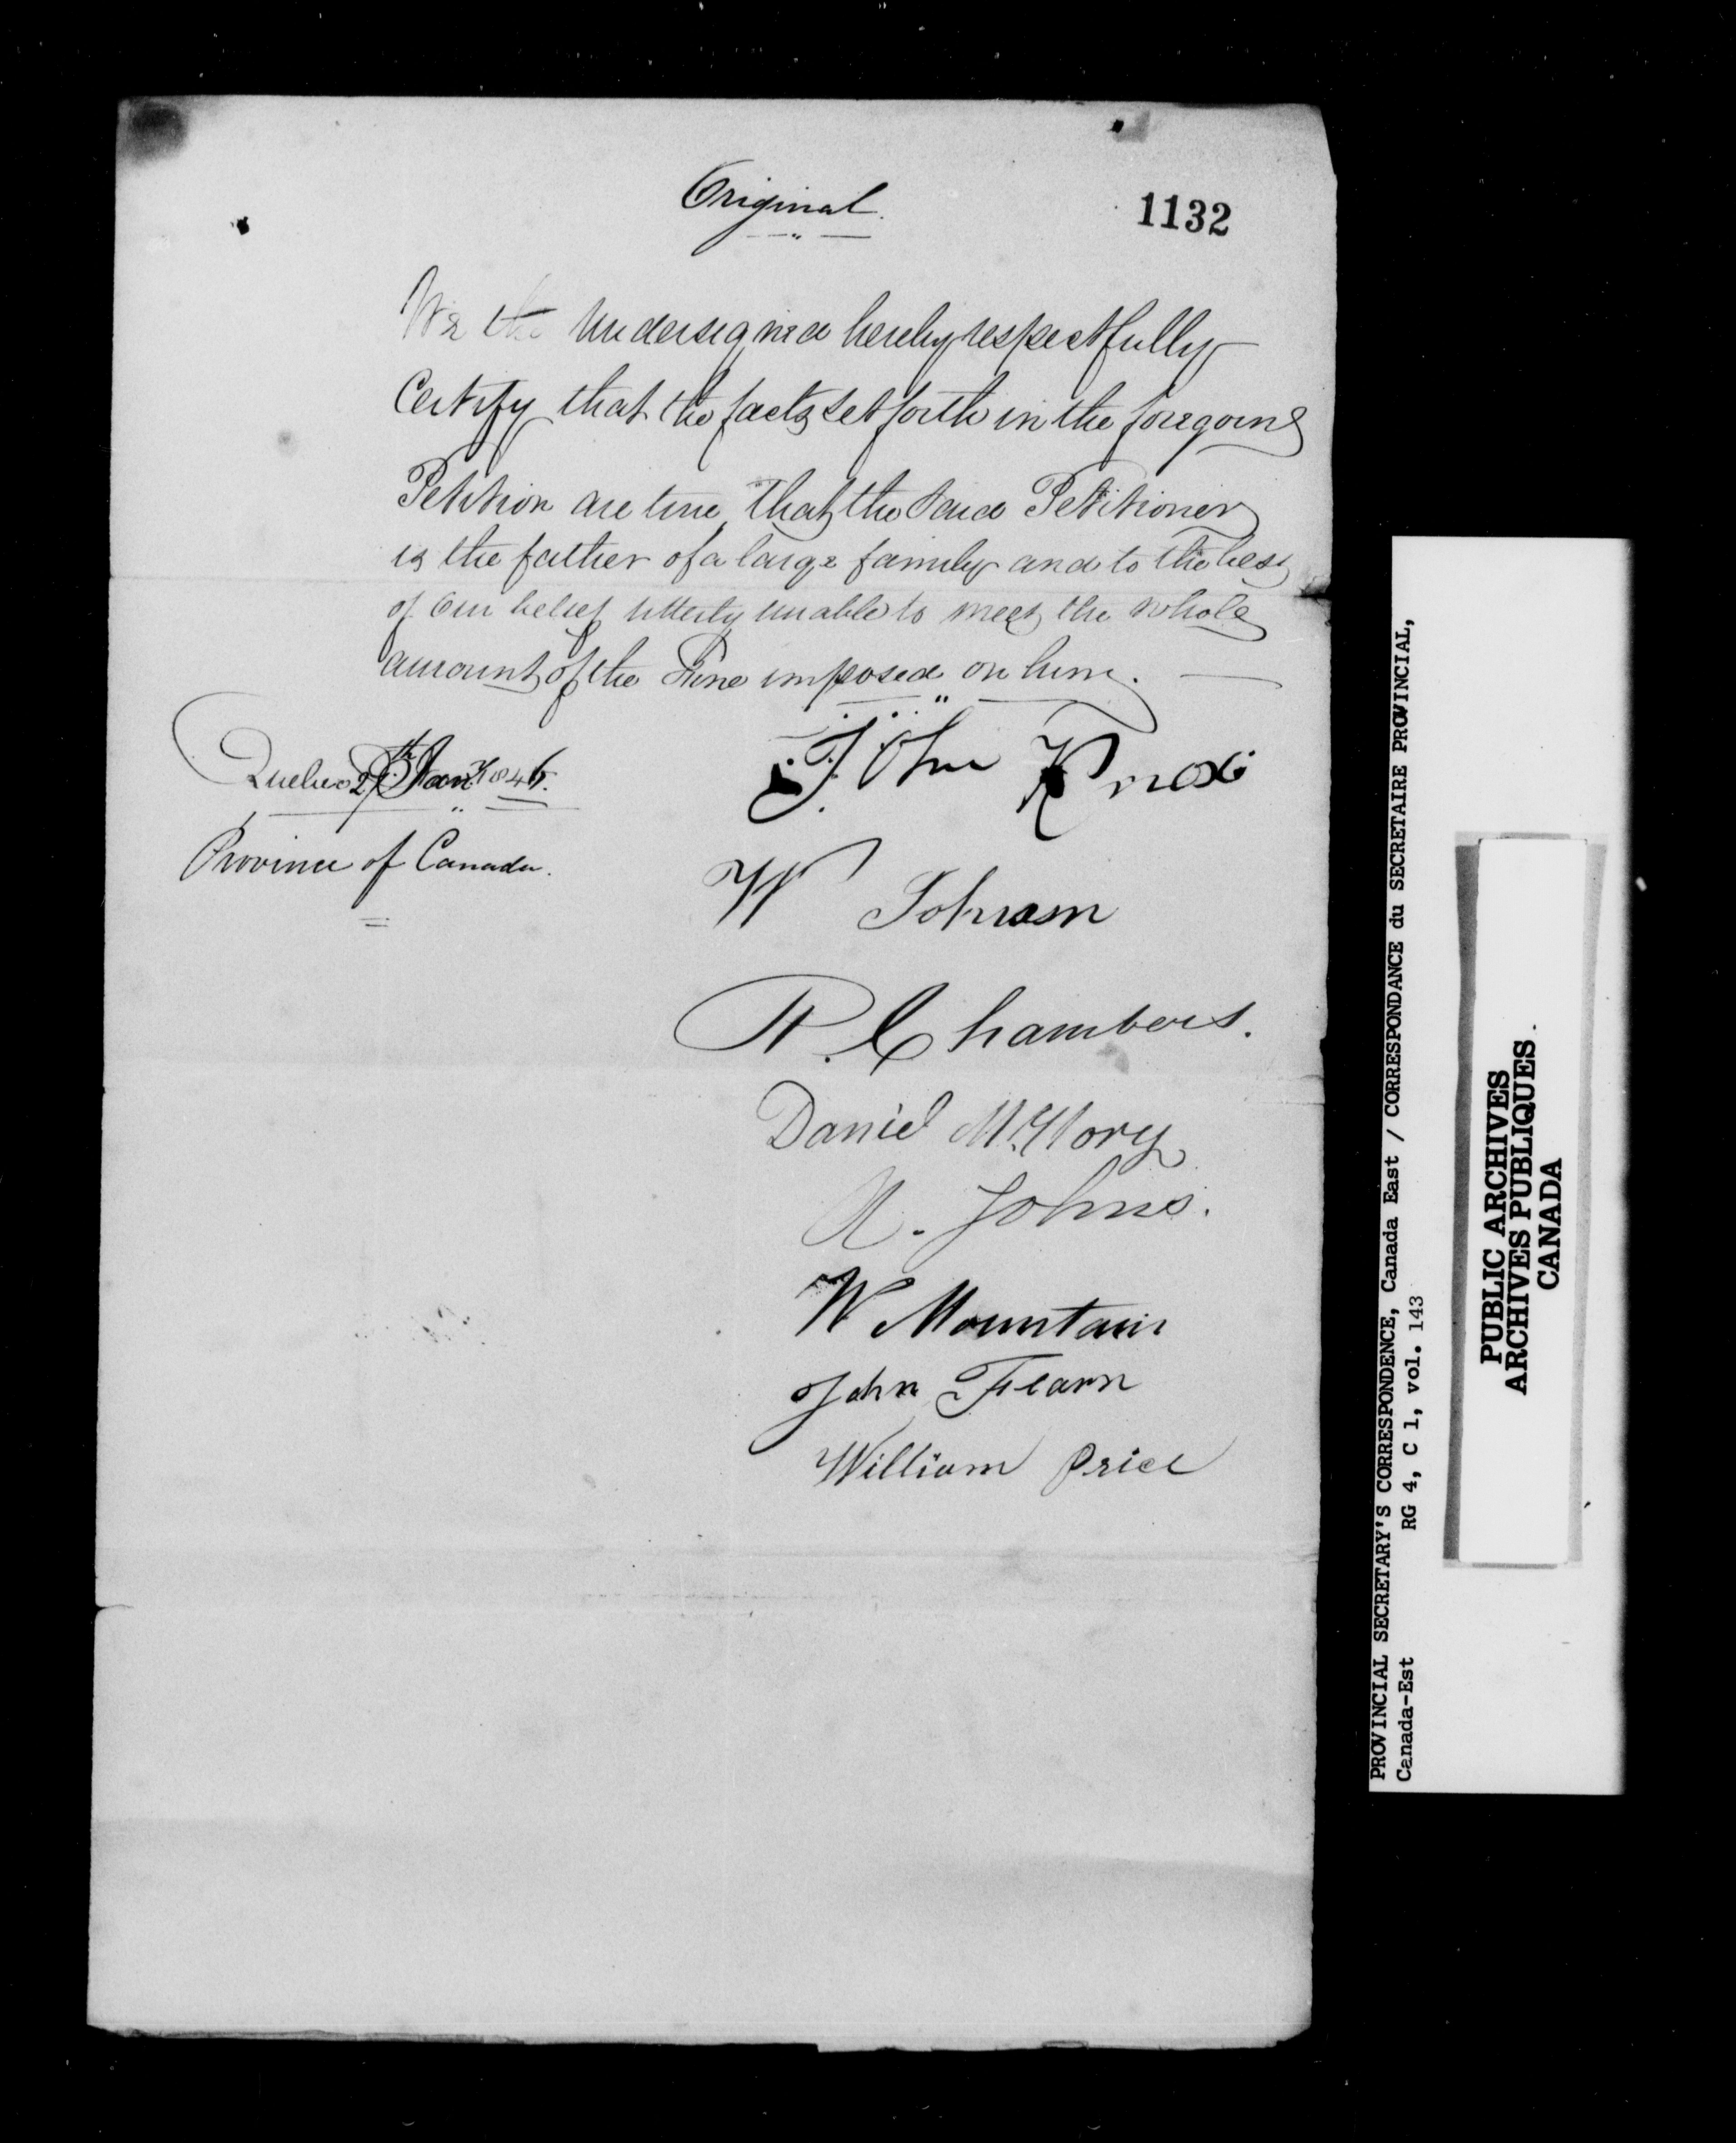 Original
1132
We the Undersigned hereby respectfully
Certify that the facts set forth in the foregoing
Petition are true, that the said Petitioner
is the father of a large family and to the best
of Our belief utterly unable to meet the whole
amount of the Fine imposed on him.
Quebec 27th Jany 1846.
Province of Canada.
John Knox
W Johnson
R. Chambers.
Daniel
Johns.
W Mountain
John Fearn
William Price
PROVINCIAL SECRETARY'S CORRESPONDENCE, Canada East / CORRESPONDANCE du SECRETAIRE PROVINCIAL,
Canada-Est RG 4, C 1, vol. 143
PUBLIC ARCHIVES
ARCHIVES PUBLIQUES.
CANADA